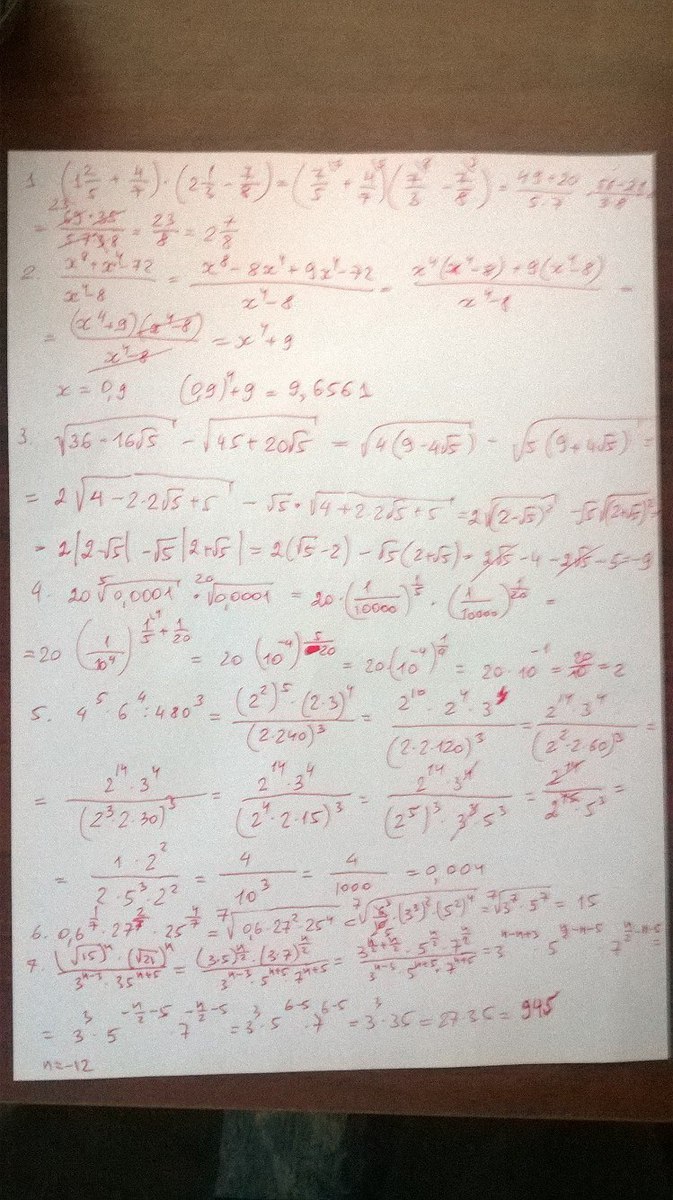 1 (1 2/5 + 4/7) · (2 1/3 - 7/8) = (7/5 + 4/7)(7/3 - 7/8) = (49+20)/(5·7)
= (69·35)/(5·7·3·8) = 23/8 = 2 7/8
2. (x⁸+x⁴-72)/(x⁴-8) = (x⁸-8x⁴+9x⁴-72)/(x⁴-8) = (x⁴(x⁴-8)+9(x⁴-8))/(x⁴-8) =
= ((x⁴+9)(x⁴-8))/(x⁴-8) = x⁴+9
x = 0,9 (0,9)⁴+9 = 9,6561
3. √(36-16√5) - √(45+20√5) = √(4(9-4√5)) - √(5(9+4√5)) =
= 2√(4-2·2√5+5) - √5·√(4+2·2√5+5) = 2√(2-√5)² - √5√(2+√5)² =
= 2|2-√5| - √5|2+√5| = 2(√5-2) - √5(2+√5) = 2√5-4-2√5-5=-9
4. 20 ⁵√0,0001 · ²⁰√0,0001 = 20·(1/10000)^(1/5) · (1/10000)^(1/20) =
=20 (1/10⁴)^(1/5+1/20) = 20 (10⁻⁴)^(5/20) = 20(10⁻⁴)^(1/4) = 20·10⁻¹ = 20/10 = 2
5. 4⁵·6⁴:480³ = ((2²)⁵·(2·3)⁴)/(2·240)³ = (2¹⁰·2⁴·3⁴)/(2·2·120)³ = (2¹⁴·3⁴)/(2²·2·60)³ =
= (2¹⁴·3⁴)/(2³·2·30)³ = (2¹⁴·3⁴)/(2⁴·2·15)³ = (2¹⁴·3⁴)/((2⁵)³·3³·5³) = 2¹⁴/(2¹⁵·5³) =
= (1·2²)/(2·5³·2²) = 4/10³ = 4/1000 = 0,004
6. 0,6^(1/7)·27^(2/7)·25^(4/7) = ⁷√(0,6·27²·25⁴) = ⁷√(3/5·(3³)²·(5²)⁴) = ⁷√(3⁷·5⁷) = 15
7. ((√15)ⁿ·(√21)ⁿ)/(3ⁿ⁻³·35ⁿ⁺⁵) = ((3·5)^(n/2)·(3·7)^(n/2))/(3ⁿ⁻³·5ⁿ⁺⁵·7ⁿ⁺⁵) = (3^(n/2+n/2)·5^(n/2)·7^(n/2))/(3ⁿ⁻³·5ⁿ⁺⁵·7ⁿ⁺⁵) = 3^(n-n+3) 5^(n/2-n-5) 7^(n/2-n-5) =
= 3³·5^(-n/2-5)·7^(-n/2-5) = 3³·5⁶⁻⁵·7⁶⁻⁵ = 3³·35 = 27·35 = 945
n=-12